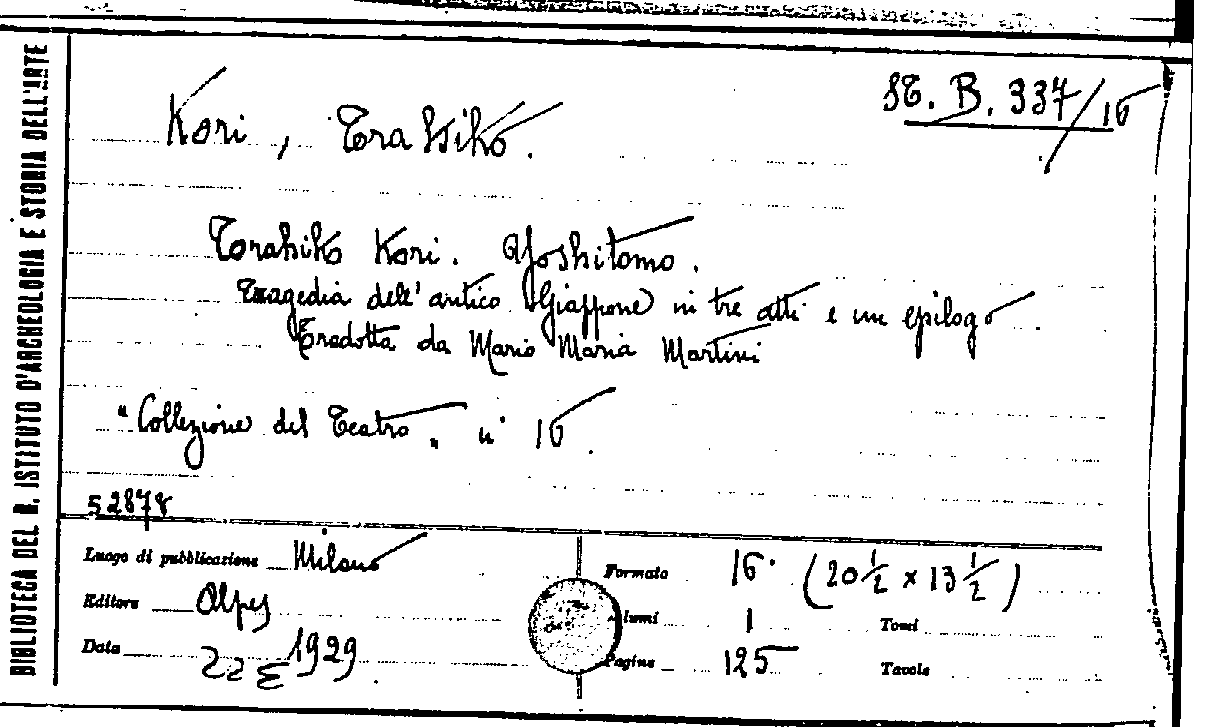 BIBLIOTECA DEL R. ISTITUTO D'ARCHEOLOGIA E STORIA DELL'ARTE
ST. B. 337/16
Kori, Torahiko.
Torahiko Kori. Yoshitomo.
Tragedia dell'antico Giappone in tre atti e un epilogo.
Tradotta da Mario Maria Martini
"Collezione del Teatro" n° 16.
52878
Luogo di pubblicazione Milano
Editore Alpes
Data 1929
Formato 16° (20 ½ x 13 ½)
Volumi 1 Tomi
Pagine 125 Tavole